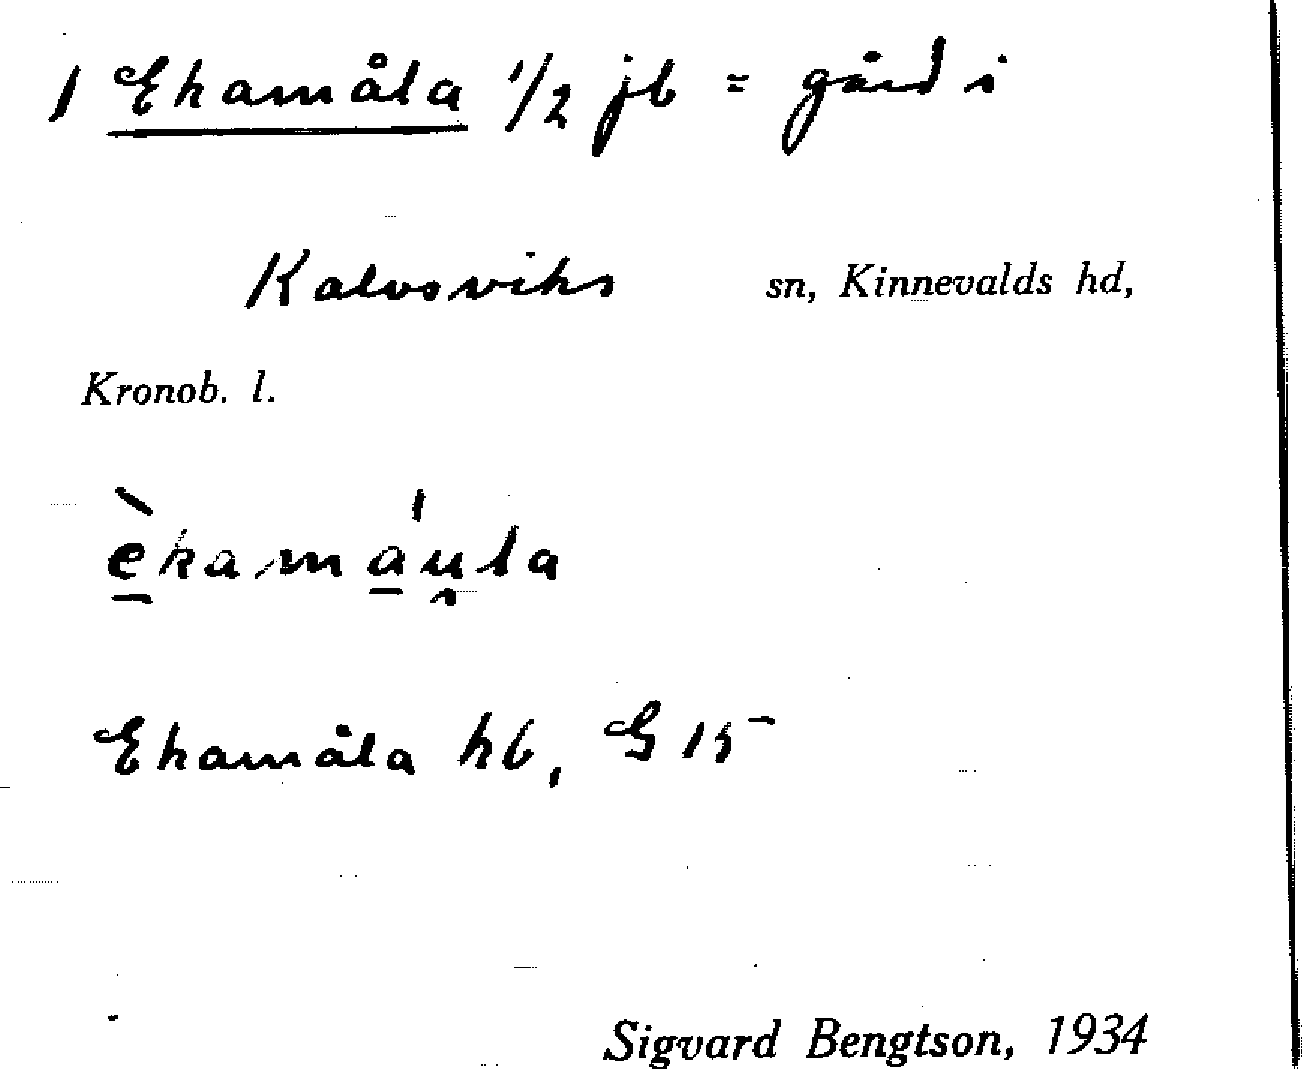 1 Ekamåla 1/2 jb = gård i
Kalvsviks sn, Kinnevalds hd,
Kronob. l.
èkamáu̯la
Ekamåla hb, G 15
Sigvard Bengtson, 1934